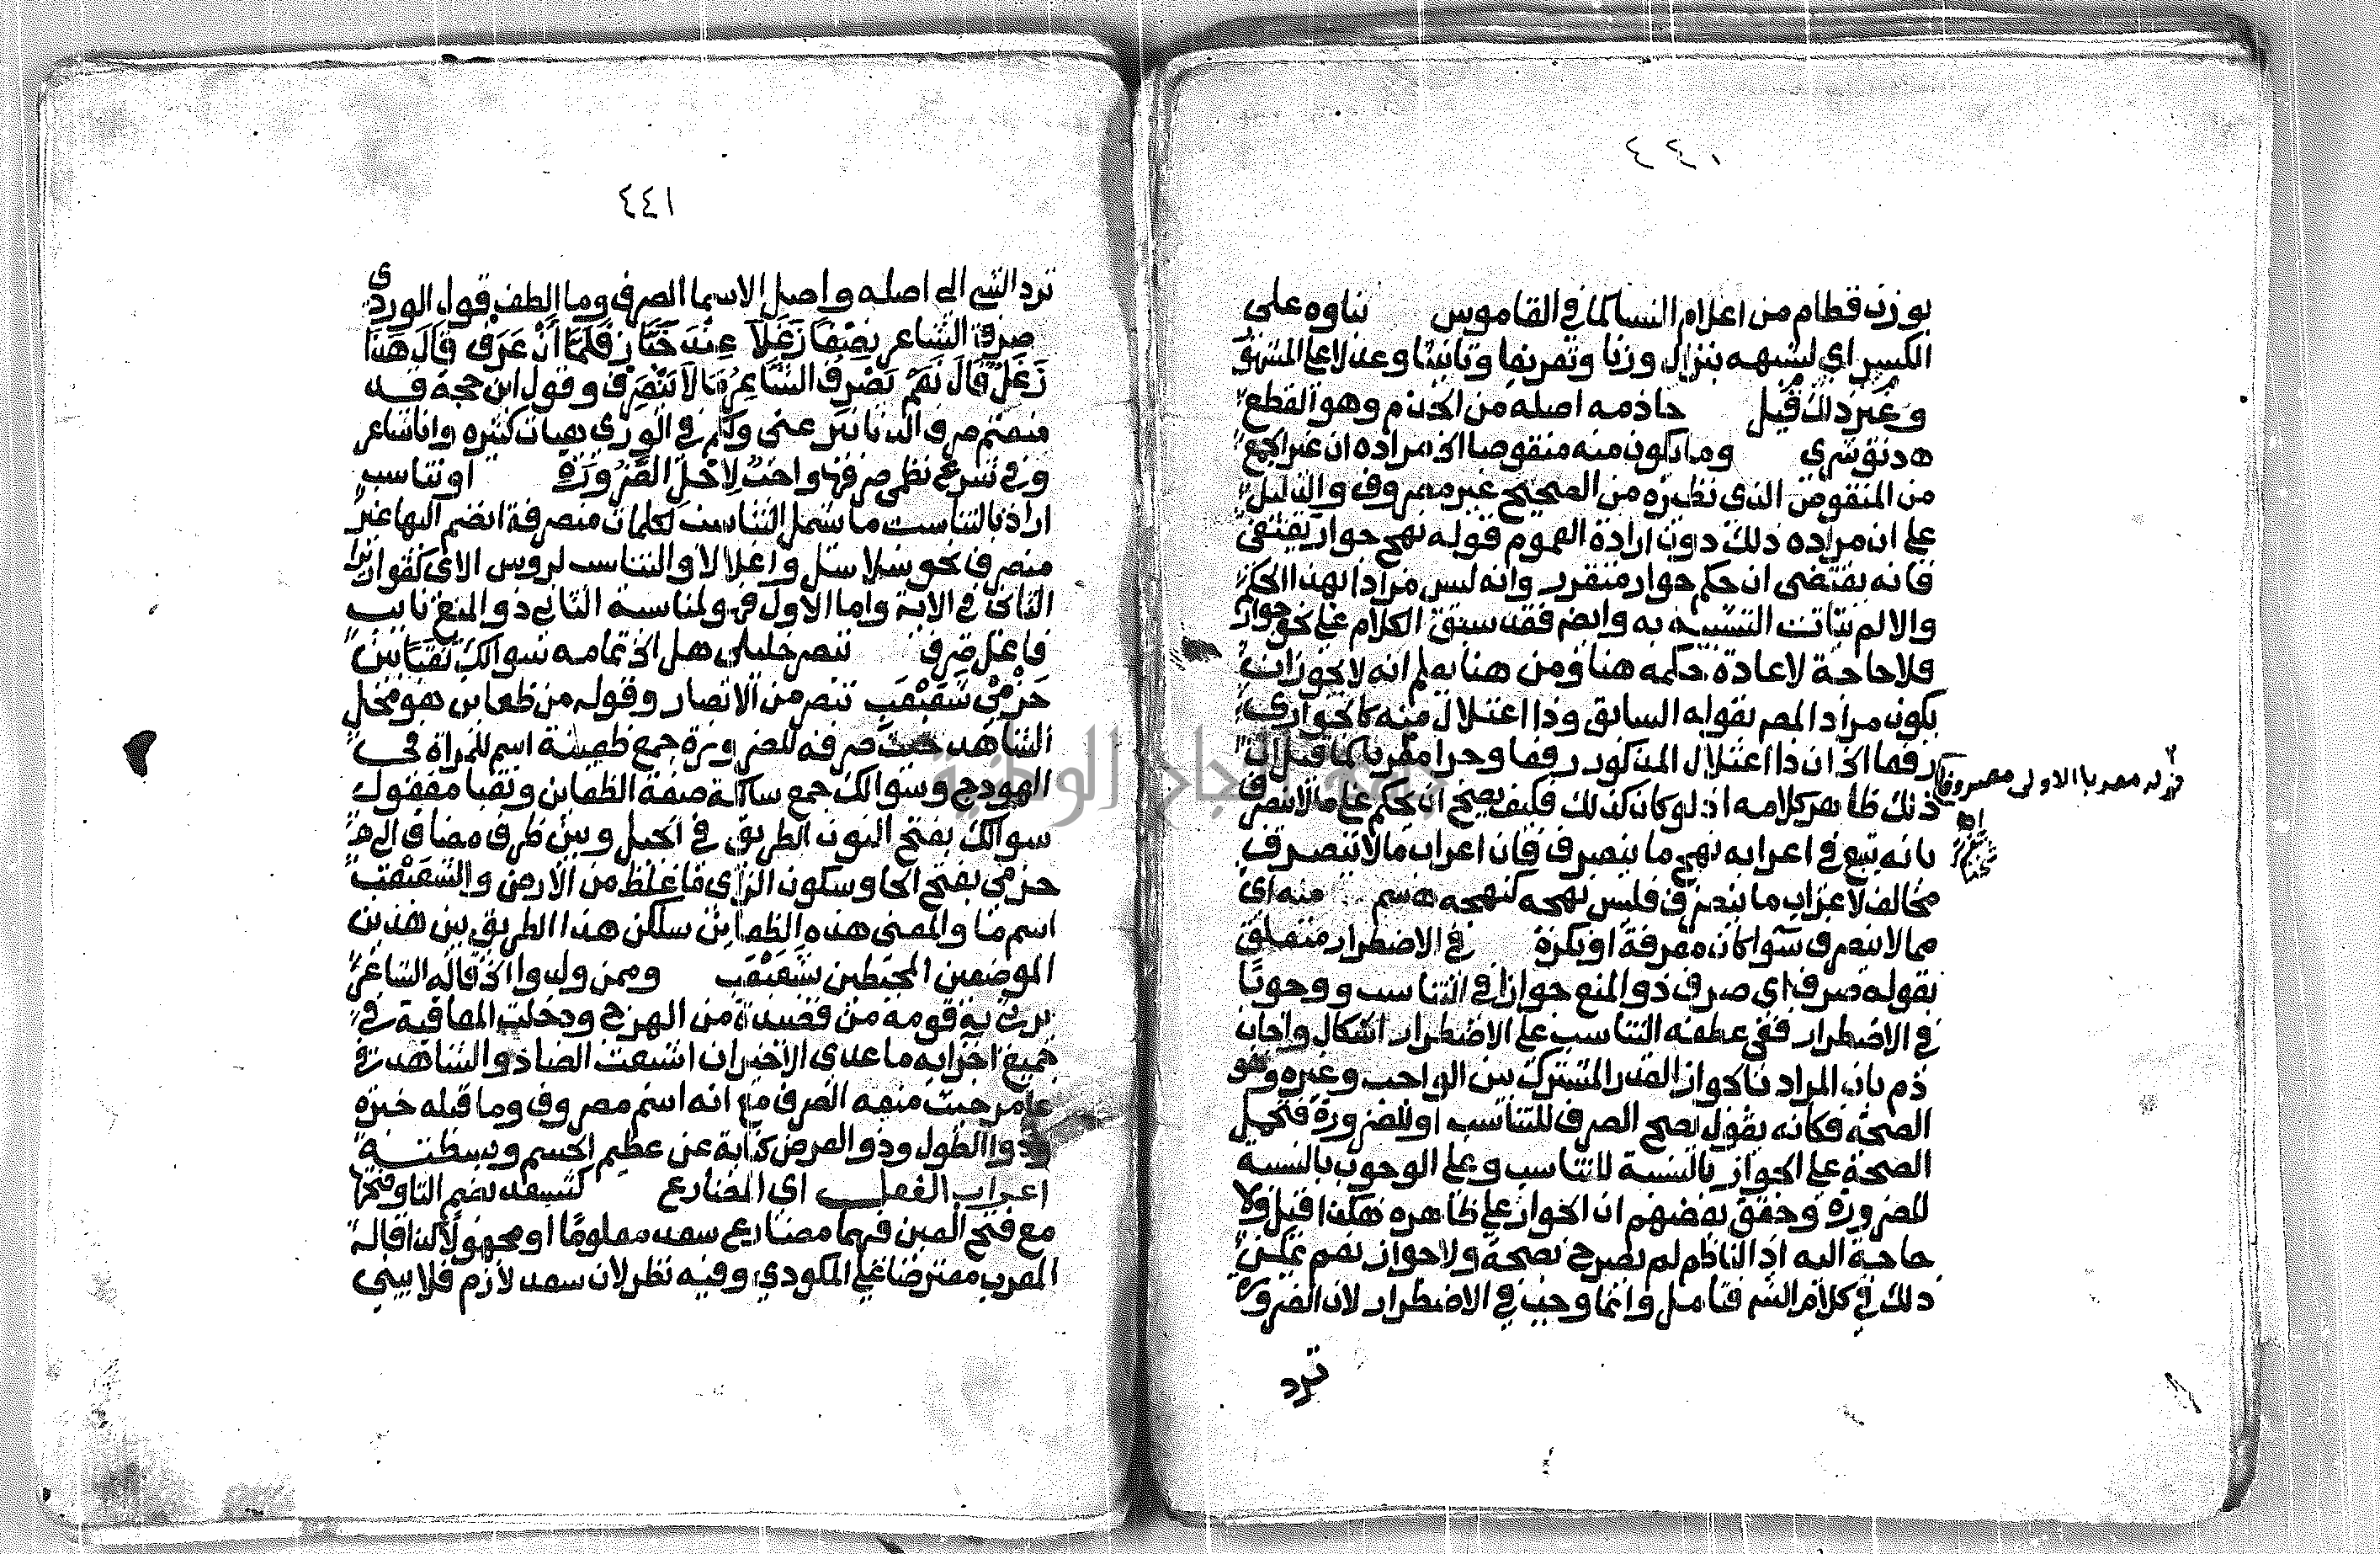 ٤٤٠
بوزن قطام من اعلام النسا كما في القاموس بناوه على
الكسر اي لشبهه بنزال وزنا وتعريفا وتانيثا وعدلا على المشهور
وغير ذلك قيل حاذمه اصله من الحذم وهو القطع
وما يكون منه منقوصا الخ مراده ان غير
من المنقوص الذي نظيره من الصحيح غير مصروف والدليل
على ان مراده ذلك دون ارادة العموم قوله نهج جوار يقتفي
فانه يقتضي ان حكم جوار متقرر وانه ليس مرادا بهذا الحكم
والا لم يتات التشبيه به وايضر فقد سبق الكلام على نحو جوار
فلا حاجة لاعادة حكمه هنا ومن هنا يعلم انه لا يجوز ان
يكون مراد المصر بقوله السابق وذا اعتلال منه كالجواري
رفعا الخ ان ذا اعتلال المذكور رفعا وجرا كما قيل ان
ذلك ظاهر كلامه اذ لو كان كذلك فكيف يصح ان يحكم على ما لا ينصرف
بانه يتبع في اعرابه نهج ما ينصرف فان اعراب ما لا ينصرف
مخالف لاعراب ما ينصرف فليس نهجه كنهجه هسم منه اي
مما لا ينصرف سوا كان معرفة او نكرة في الاضطرار متعلق
بقوله صرف اي صرف ذو المنع جوازا في التناسب ووجوبا
في الاضطرار ففي عطفه التناسب على الاضطرار اشكال واجاب
ذم بان المراد بالجواز القدر المشترك بين الواجب وغيره وهو
الصحة فكانه يقول يصح الصرف للتناسب او للضرورة فتحمل
الصحة على الجواز بالنسبة للتناسب وعلى الوجوب بالنسبة
للضرورة وحقق بعضهم ان الجواز على ظاهره هكذا قيل ولا
حاجة اليه اذ الناظم لم يصرح بصحة ولا جواز نعم يمكن
ذلك في كلام الشر فتامل وانما وجب في الاضطرار لان الضرورة
ترد
٤٤١
ترد الشي الى اصله واصل الاسما الصرف وما الطف قول الوردي
صرف الشاعر نِصْفًا زَغَلاً عِنْدَ خَبَّازٍ فَلَمَّا أَنْ عَرَفْ قَالَ هَذَا
زَغَلٌ قَالَ نَعَمْ يَصْرِفُ الشَّاعِرُ مَا لَا يَنْصَرِفْ وقول ابن حجة قد
منعتم صرف الدنانير عني وكم في الورى هبات كثيره وانا شاعر
وفي شرع نظمي صرفها واجب لاجل الضروره او تناسب
اراد بالتناسب ما شمل التناسب لكلمات منصرفة انضم اليها غير
منصرف نحو سلاسل واغلالا والتناسب لروس الاي كقواريرا
الثاني في الاية واما الاول فهو لمناسبة الثاني ذو المنع نايب
فاعل صرف تبصر خليلي هل الخ تمامه سوالك نقبا بين
حَزْمَيْ شَعَبْعَبِ تبصر من الابصار وقوله من ظعاين هو محل
الشاهد حيث صرفه للضرورة جمع ظعينة اسم للمراة في
الهودج وسوالك جمع سالكة صفة الظعاين ونقبا مفعول
سوالك بفتح النون الطريق في الجبل وبين ظرف مضاف الى
حزمي بفتح الحا وسكون الزاى ما غلظ من الارض والشعبعب
اسم ما والمعنى هذه الظعاين سلكن هذا الطريق بين هذين
الموضعين المحيطين بشعبعب وممن ولدوا الخ قاله الشاعر
يرثي به قومه من قصيدة من الهزج ودخلت المعاقبة في
جميع اجزايه ما عدى الاخير ان اشبعت الضاد والشاهد في
عامر حيث منعه الصرف مع انه اسم مصروف وما قبله خبره
وذوا الطول وذو العرض كناية عن عظيم الجسم وبسطته
اعراب الفعل اي المضارع كتسعد بضم التا وفتحها
مع فتح العين فيهما مضارع سعد معلوما او مجهولا كذا قاله
المعرب معترضا على المكودي وفيه نظر لان سعد لازم فلا يبنى